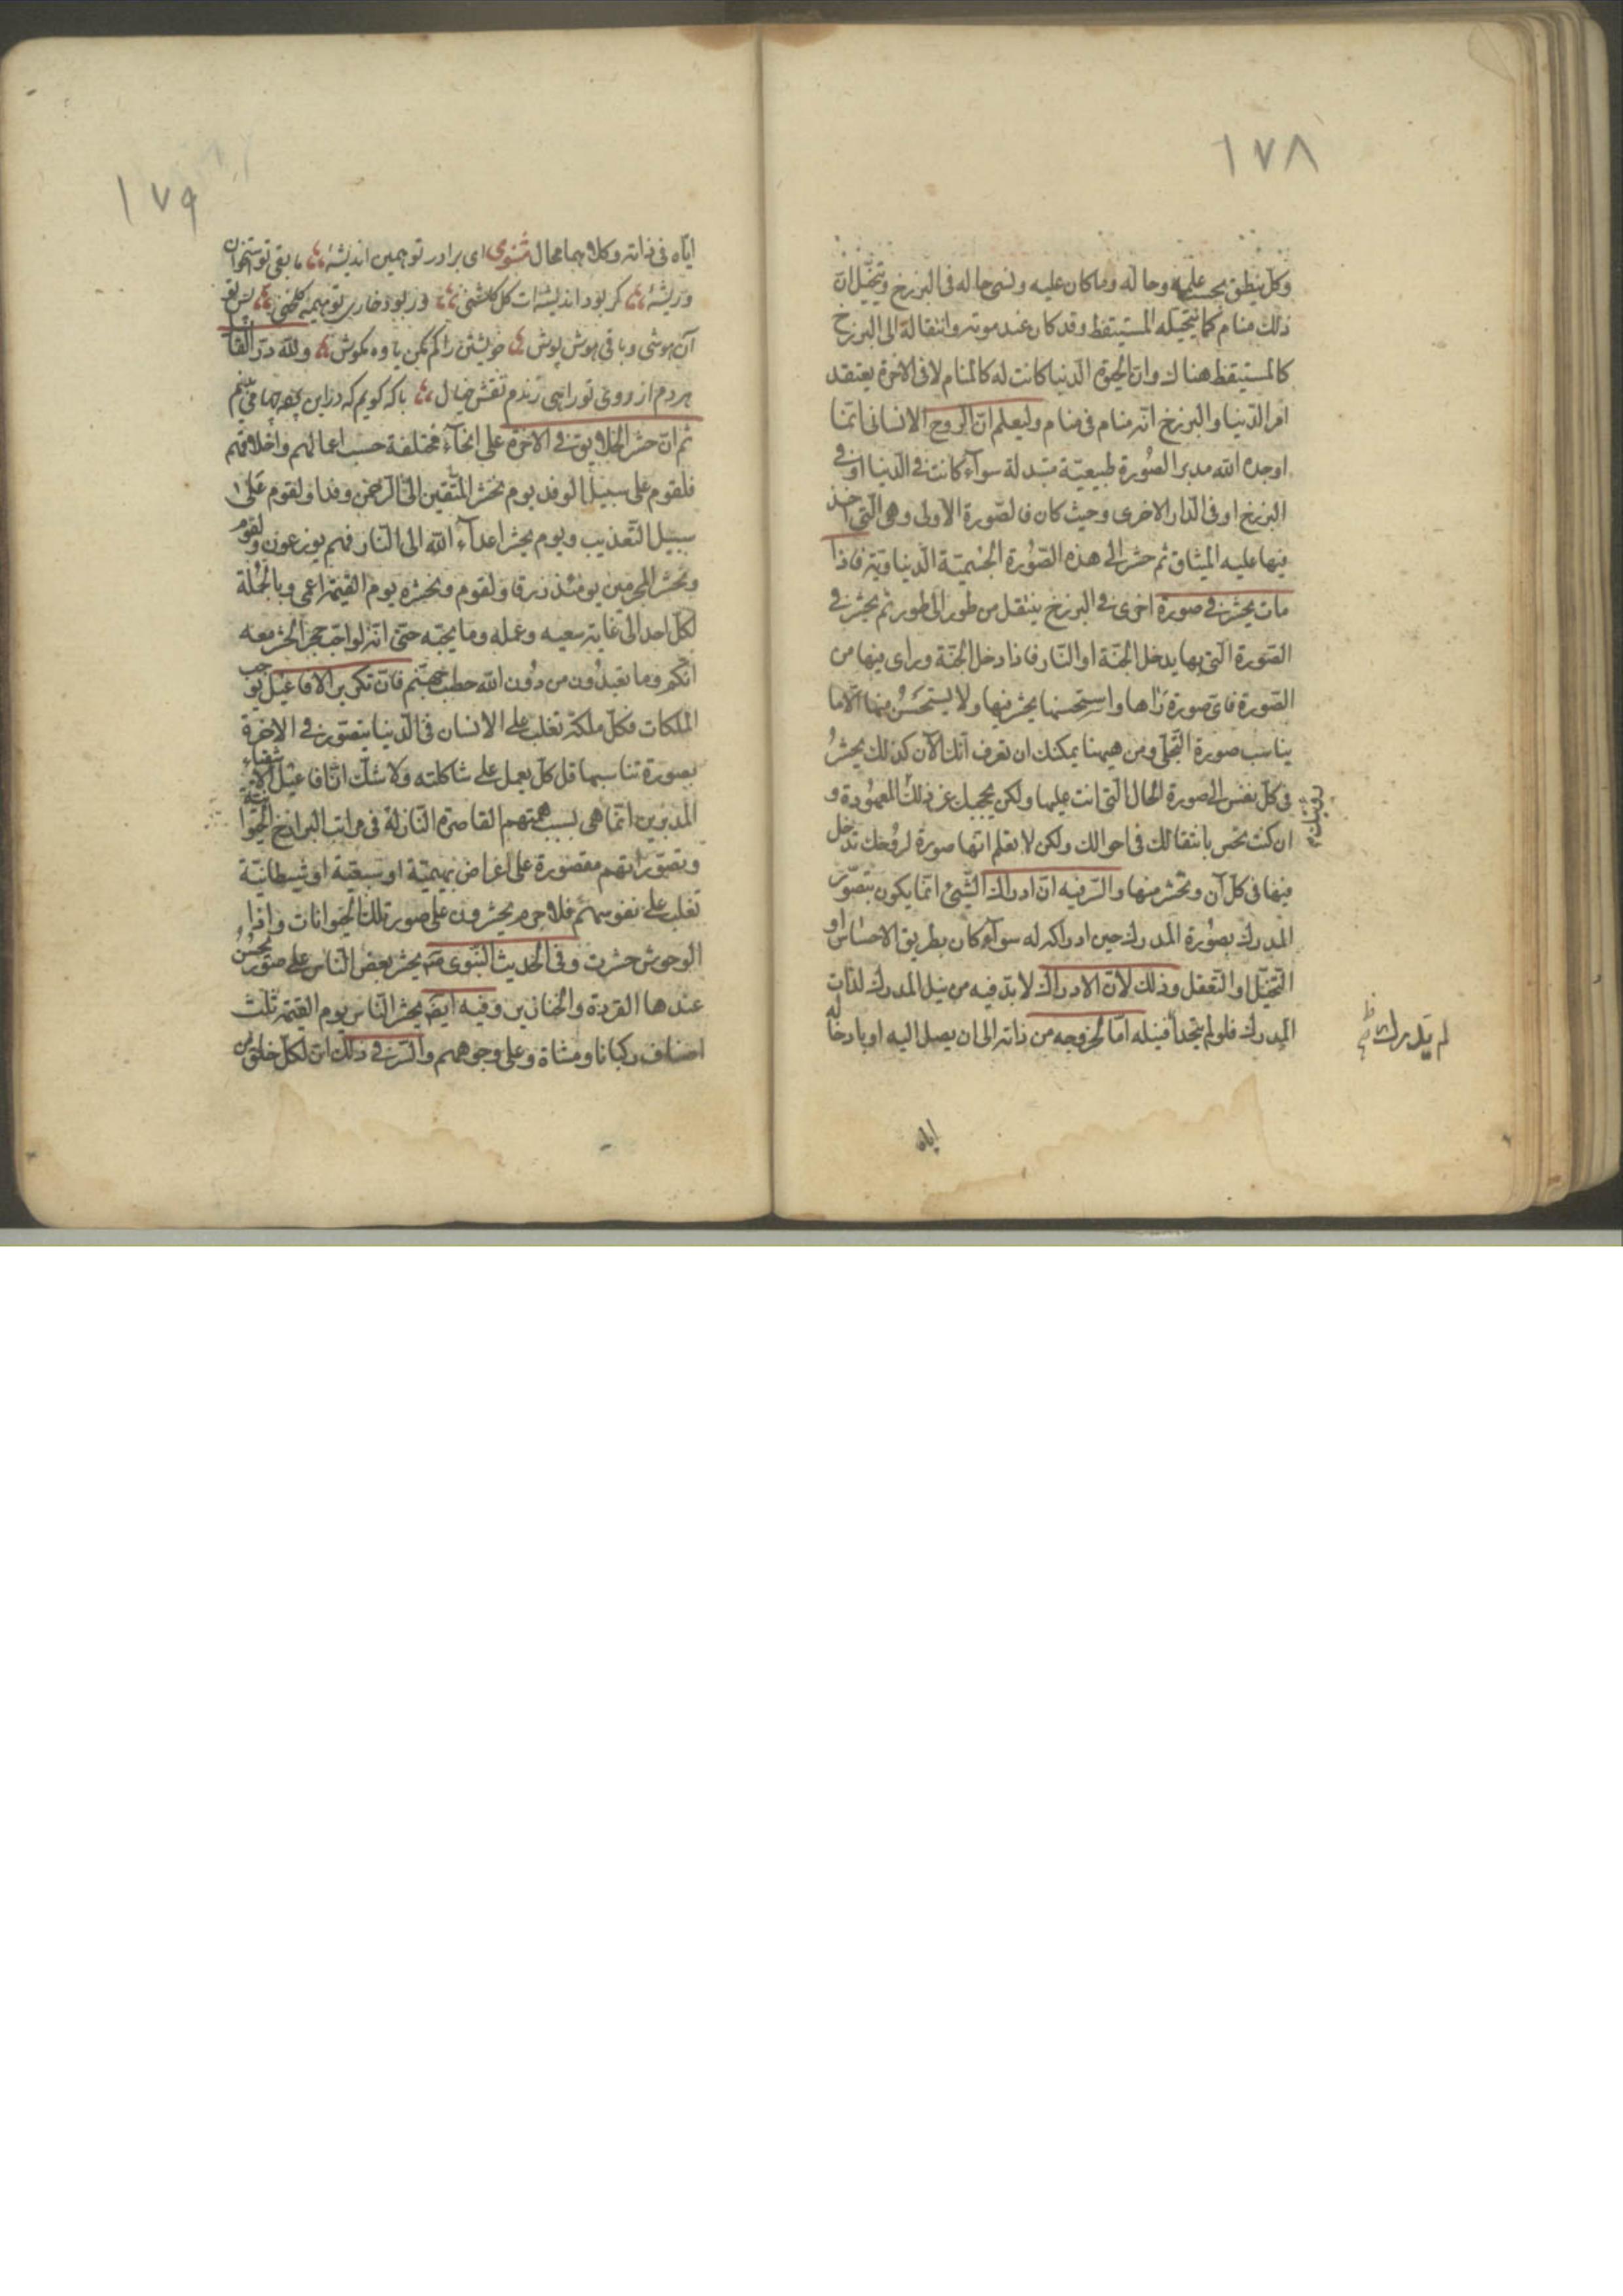 ١٧٨
وكل ينطق بحسب علمه وحاله وما كان عليه ونسى حاله فى البرزخ ويتخيل ان
ذلك منام كما يتخيله المستيقظ وقد كان عند موته وانتقاله الى البرزخ
كالمستيقظ هناك وان الحيوة الدنيا كانت له كالمنام لا فى الاخرة يعتقد
امر الدنيا والبرزخ انه منام فى منام وليعلم ان الروح الانسانى انما
اوجده الله مدبر الصورة طبيعية متبدلة سواء كانت فى الدنيا او فى
البرزخ او فى الدار الاخرى وحيث كان فالصورة الاولى وهى التى اخذ
فيها عليه الميثاق ثم حشر الى هذه الصورة الجسمية الدنياوية فاذا
مات يحشر فى صورة اخرى فى البرزخ ينتقل من طور الى طور ثم يحشر فى
الصورة التى بها يدخل الجنة او النار فاذا دخل الجنة وراى فيها من
الصورة فاى صورة رآها واستحسنها يحشر فيها ولا يستحسن منها الا ما
يناسب صورة التجلى ومن هيهنا يمكنك ان تعرف انك الآن كذلك يحشر
فى كل نفس الى صورة الحال التى انت عليها ولكن يحجبك عن ذلك المعهودة و
رؤيتك
ان كنت تحس بانتقالك فى احوالك ولكن لا تعلم انها صورة لروحك تدخل
فيها فى كل آن وتحشر منها والسر فيه ان ادراك الشىء انما يكون بتصور
المدرك بصورة المدرك حين ادراكه له سواء كان بطريق الاحساس او
التخيل او التعقل وذلك لان الادراك لا بد فيه من نيل المدرك لذات
المدرك فلو لم يتحدا فنيله اما لخروجه من ذاته الى ان يصل اليه او بادخاله
لم يدرك
اياه
١٧٩
اياه فى ذاته وكلاهما محال مثنوى اى برادر تو همين انديشهٔ ما بقى تو استخوان
وريشهٔ كر بود انديشه ات كل كلشنى ور بود خارى تو هيمه كلخنى پس تو
آن هوشى وباقى هوش پوش خويشتن را كم مكن ياوه مكوش ولله در القائل
هر دم از روى تو راهى زندم نقش خيال با كه كويم كه در اين پرده چها مى بينم
ثم ان حشر الخلايق فى الاخرة على انحاء مختلفة حسب اعمالهم واخلاقهم
فلقوم على سبيل الوفد يوم نحشر المتقين الى الرحمن وفدا ولقوم على
سبيل التعذيب ويوم يحشر اعداء الله الى النار فهم يوزعون ولقوم
ونحشر المجرمين يومئذ زرقا ولقوم ونحشره يوم القيمة اعمى وبالجملة
لكل احد الى غاية سعيه وعمله وما يحبه حتى انه لو احب حجر الحشر معه
انكم وما تعبدون من دون الله حصب جهنم فان تكرير الافاعيل يوجب
الملكات فكل ملكة تغلب على الانسان فى الدنيا يتصور فى الاخرة
بصورة تناسبها قل كل يعمل على شاكلته ولا شك ان افاعيل الاشقياء
المدبرين انما هى بسبب هممهم القاصرة النازلة فى مراتب البرازخ الحيوانية
وتصوراتهم مقصورة على اغراض بهيمية او سبعية او شيطانية
تغلب على نفوسهم فلا جرم يحشرون على صورة تلك الحيوانات واذا
الوحوش حشرت وفى الحديث النبوى يحشر بعض الناس على صور يحسن
عندها القردة والخنازير وفيه ايضا يحشر الناس يوم القيمة ثلث
اصناف ركبانا ومشاة وعلى وجوههم والسر فى ذلك ان لكل خلق من